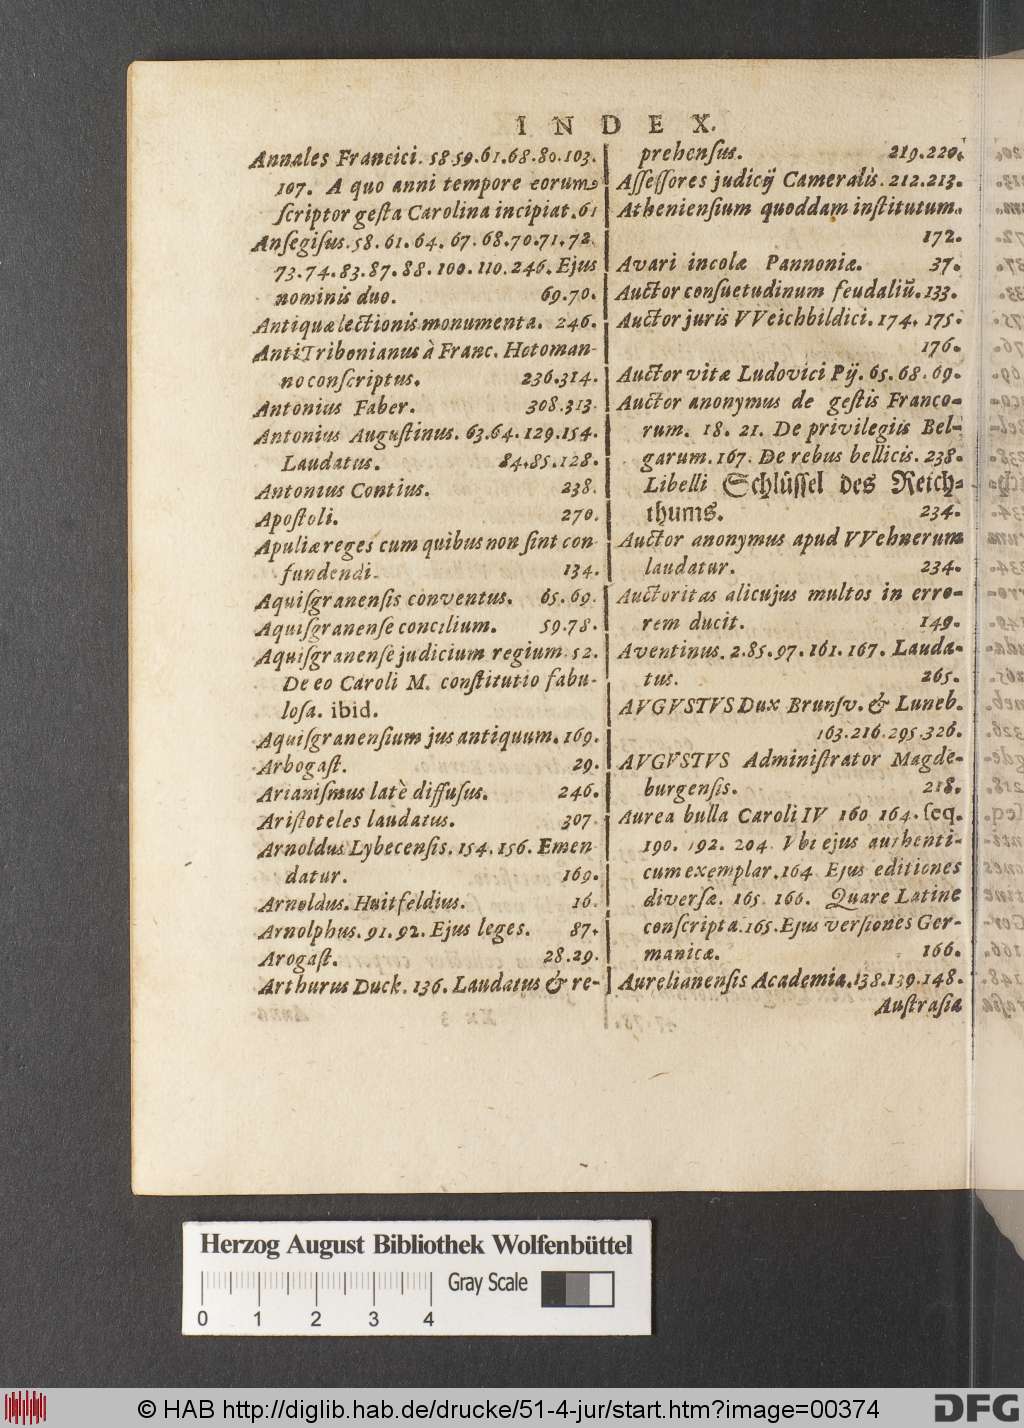 INDEX.
Annales Francici. 58.59.61.68.80.103.
107. A quo anni tempore eorum
ſcriptor geſta Carolina incipiat. 61
Anſegiſus. 58. 61. 64. 67. 68. 70. 71. 72.
73. 74. 83. 87. 88. 100. 110. 246. Ejus
nominis duo. 69. 70.
Antiquæ lectionis monumenta. 246.
AntiTribonianus à Franc. Hotoman-
no conſcriptus. 236.314.
Antonius Faber. 308.313.
Antonius Auguſtinus. 63.64.129.154.
Laudatus. 84.85.128.
Antonius Contius. 238.
Apoſtoli. 270.
Apuliæ reges cum quibus non ſint con
fundendi. 134.
Aquiſgranenſis conventus. 65. 69.
Aquiſgranenſe concilium. 59.78.
Aquiſgranenſe judicium regium. 52.
De eo Caroli M. conſtitutio fabu-
loſa. ibid.
Aquiſgranenſium jus antiquum. 169.
Arbogaſt. 29.
Arianiſmus latè diffuſus. 246.
Ariſtoteles laudatus. 307.
Arnoldus Lybecenſis. 154. 156. Emen
datur. 169.
Arnoldus. Huitfeldius. 16.
Arnolphus. 91. 92. Ejus leges. 87.
Arogaſt. 28.29.
Arthurus Duck. 136. Laudatus & re-
prehenſus. 219.220.
Aſſeſſores judicij Cameralis. 212.213.
Athenienſium quoddam inſtitutum.
172.
Avari incolæ Pannoniæ. 37.
Auctor conſuetudinum feudaliū. 133.
Auctor juris VVeichbildici. 174. 175.
176.
Auctor vitæ Ludovici Pij. 65. 68. 69.
Auctor anonymus de geſtis Franco-
rum. 18. 21. De privilegiis Bel-
garum. 167. De rebus bellicis. 238.
Libelli Schlüſſel des Reich-
thums. 234.
Auctor anonymus apud VVehnerum
laudatur. 234.
Auctoritas alicujus multos in erro-
rem ducit. 149.
Aventinus. 2.85.97.161.167. Lauda-
tus. 265.
AVGVSTVS Dux Brunſv. & Luneb.
163.216.295.326.
AVGVSTVS Adminiſtrator Magde-
burgenſis. 218.
Aurea bulla Caroli IV 160 164. ſeq.
190. 192. 204 Vbi ejus authenti-
cum exemplar. 164 Ejus editiones
diverſæ. 165. 166. Quare Latine
conſcripta. 165. Ejus verſiones Ger-
manicæ. 166.
Aurelianenſis Academia. 138.139.148.
Auſtraſia
Herzog August Bibliothek Wolfenbüttel
Gray Scale
0 1 2 3 4
© HAB http://diglib.hab.de/drucke/51-4-jur/start.htm?image=00374
DFG